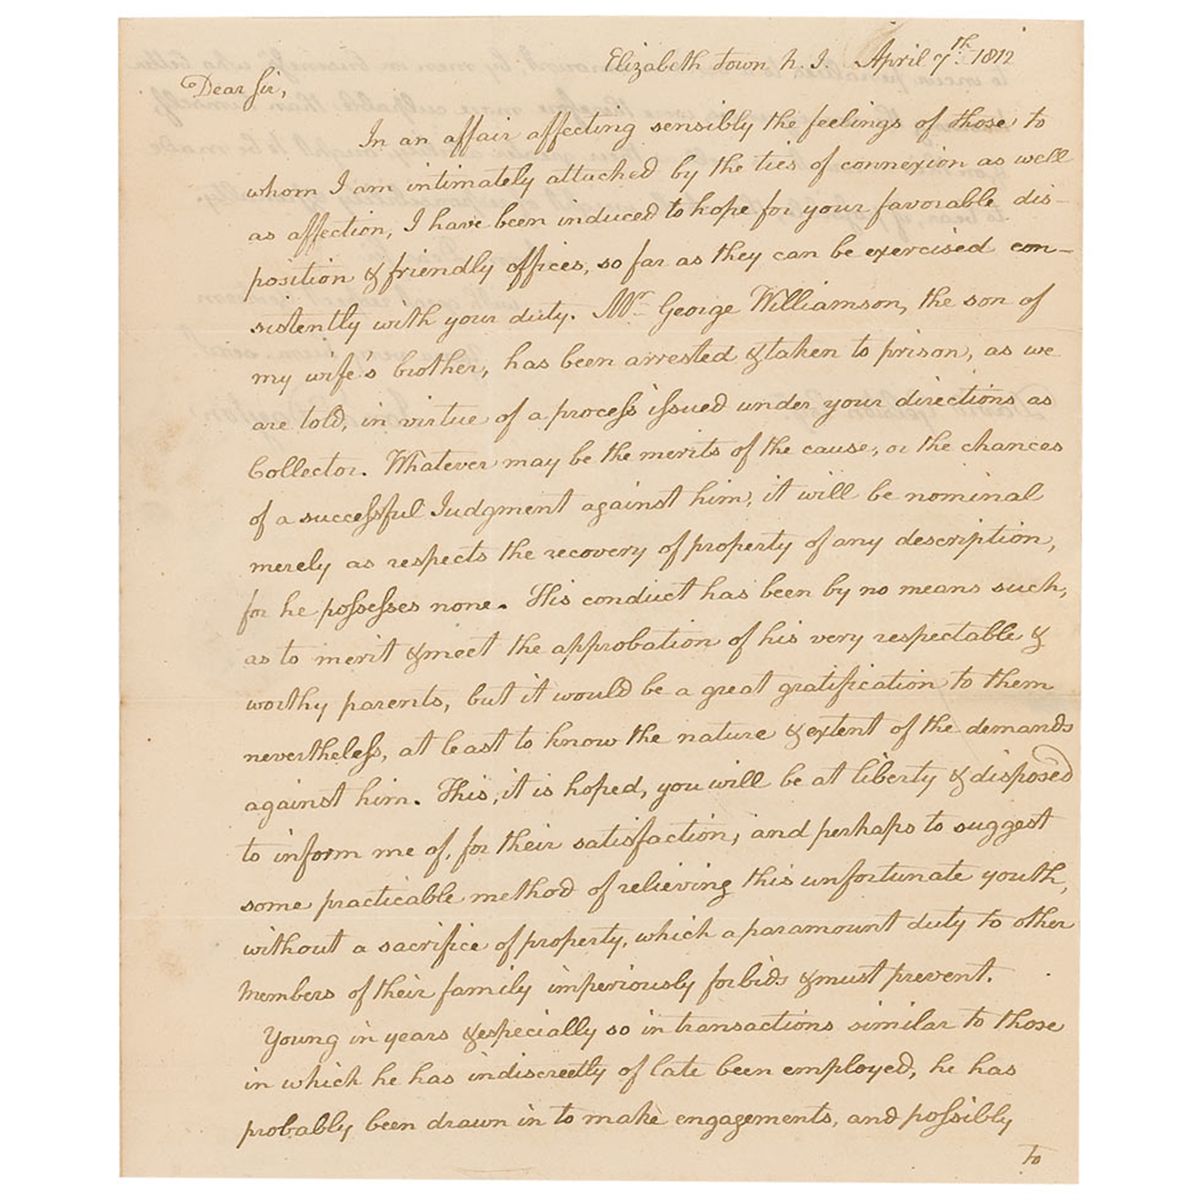 Elizabeth Town N. J. April 7th 1812
Dear Sir,
In an affair affecting sensibly the feelings of those to
whom I am intimately attached by the ties of connexion as well
as affection, I have been induced to hope for your favorable dis-
position & friendly offices, so far as they can be exercised con-
sistently with your duty. Mr George Williamson, the son of
my wife's brother, has been arrested & taken to prison, as we
are told, in virtue of a process issued under your directions as
Collector. Whatever may be the merits of the cause, or the chances
of a successful Judgment against him, it will be nominal
merely as respects the recovery of property of any description,
for he possesses none. His conduct has been by no means such,
as to merit & meet the approbation of his very respectable &
worthy parents, but it would be a great gratification to them
nevertheless, at least to know the nature & extent of the demands
against him. This, it is hoped, you will be at liberty & disposed
to inform me of, for their satisfaction, and perhaps to suggest
some practicable method of relieving this unfortunate youth,
without a sacrifice of property, which a paramount duty to other
Members of their family imperiously forbids & must prevent.
Young in years & especially so in transactions similar to those
in which he has indiscreetly of late been employed, he has
probably been drawn in to make engagements, and possibly
to